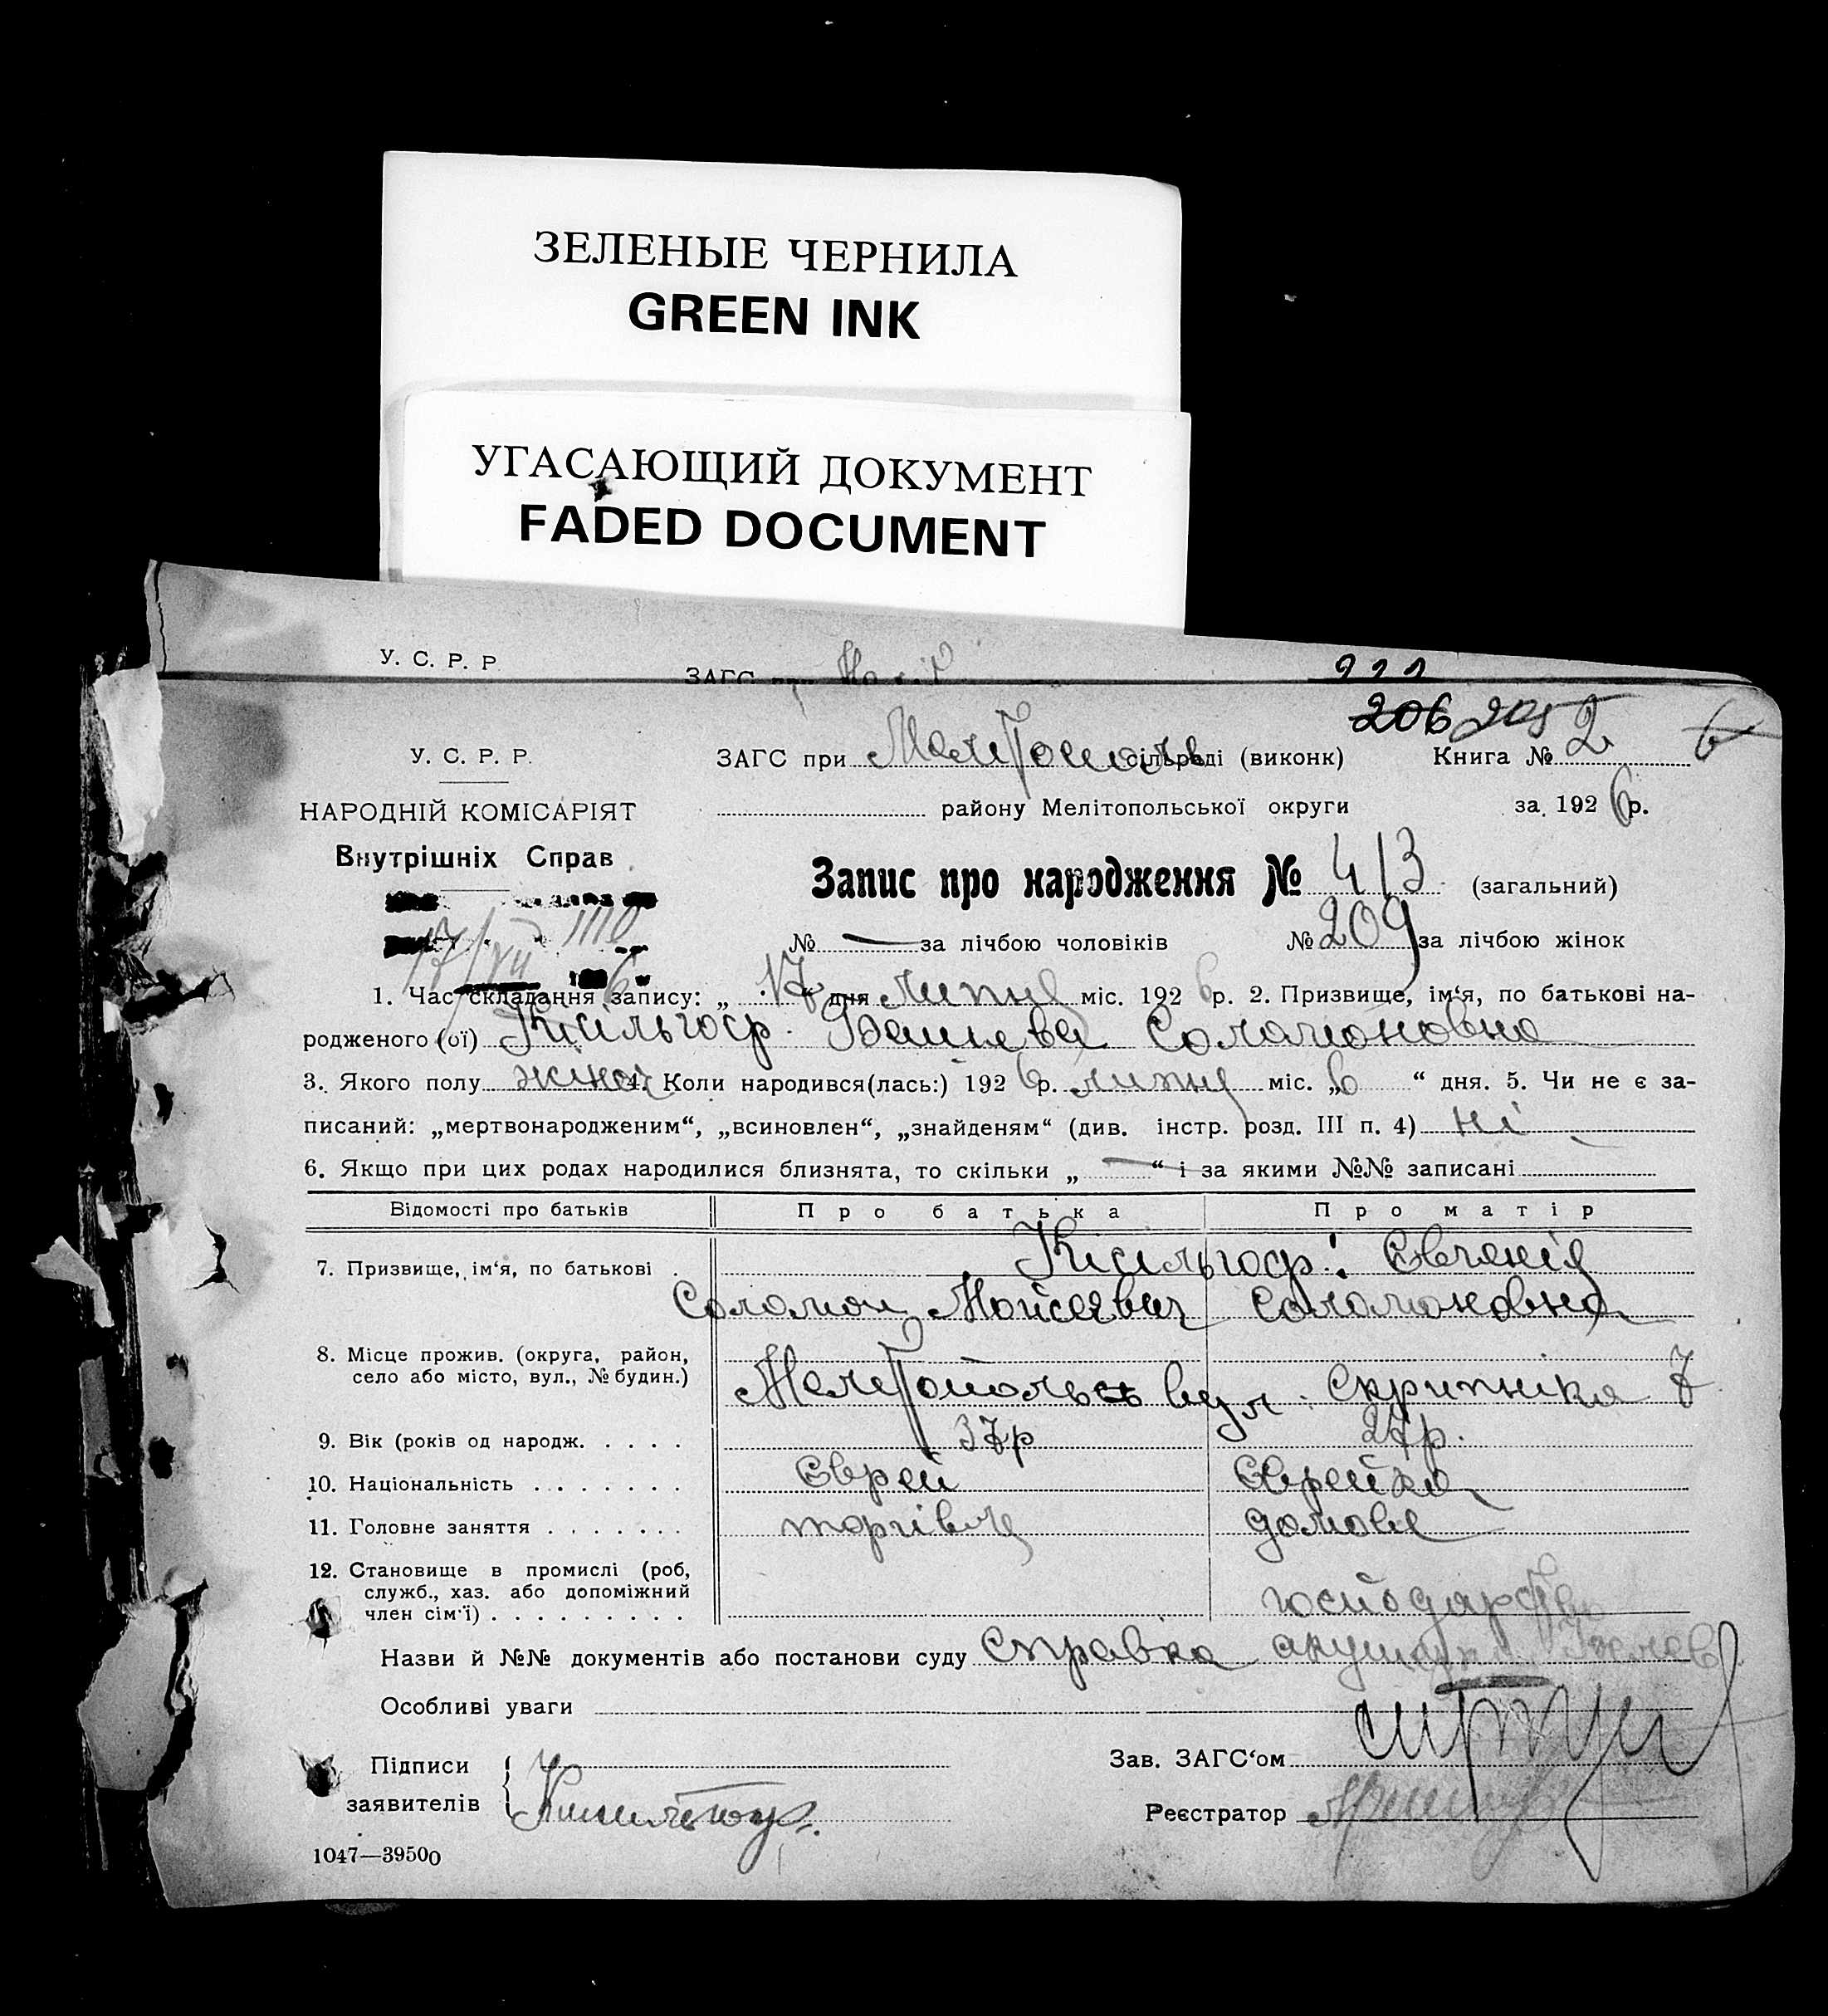 ЗЕЛЕНЫЕ ЧЕРНИЛА
GREEN INK
УГАСАЮЩИЙ ДОКУМЕНТ
FADED DOCUMENT
У. С. Р. Р
ЗАГС при
206 205 2 6
У. С. Р. Р. ЗАГС при сільраді (виконк) Книга №
НАРОДНІЙ КОМІСАРІЯТ району Мелітопольської округи за 1926 р.
Внутрішніх Справ
Запис про народження № 413 (загальний)
№ — за лічбою чоловіків № 209 за лічбою жінок
17/VII
1. Час складання запису: „ 17 “ дня липня міс. 1926 р. 2. Призвище, ім‘я, по батькові на-
родженого (ої) Кісільгоф Соломоновна
3. Якого полу жіноч 4. Коли народився(лась:) 1926 р. липня міс. „6 “ дня. 5. Чи не є за-
писаний: „мертвонародженим“, „всиновлен“, „знайденям“ (див. інстр. розд. III п. 4) ні
6. Якщо при цих родах народилися близнята, то скільки „ — “ і за якими №№ записані
Відомості про батьків Про батька Про матір
7. Призвище, ім‘я, по батькові . Кісільгоф: Євгенія
Соломон Мойсеевич Соломоновна
8. Місце прожив. (округа, район,
село або місто, вул., № будин.) вул. Скрипніка 7
9. Вік (років од народж. . . . . 37р 27р.
10. Національність . . . . . . . Єврей Єврейка
11. Головне заняття . . . . . . . торгівля домове
12. Становище в промислі (роб,
служб., хаз. або допоміжний
член сім‘ї) . . . . . . . . . господарство
Назви й №№ документів або постанови суду Справка
Особливі уваги
Підписи
заявителів
Зав. ЗАГС‘ом
Реєстратор
1047—39500